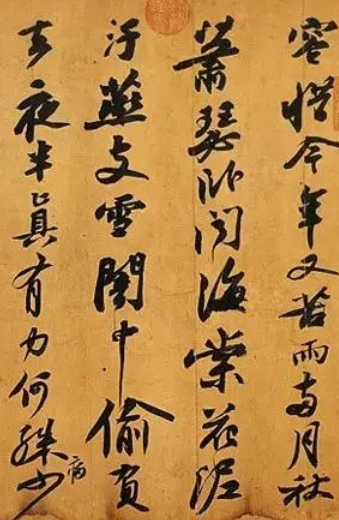 容惜今年又苦雨兩月秋
蕭瑟臥聞海棠花泥
汙燕支雪闇中偷負
去夜半真有力何殊病少